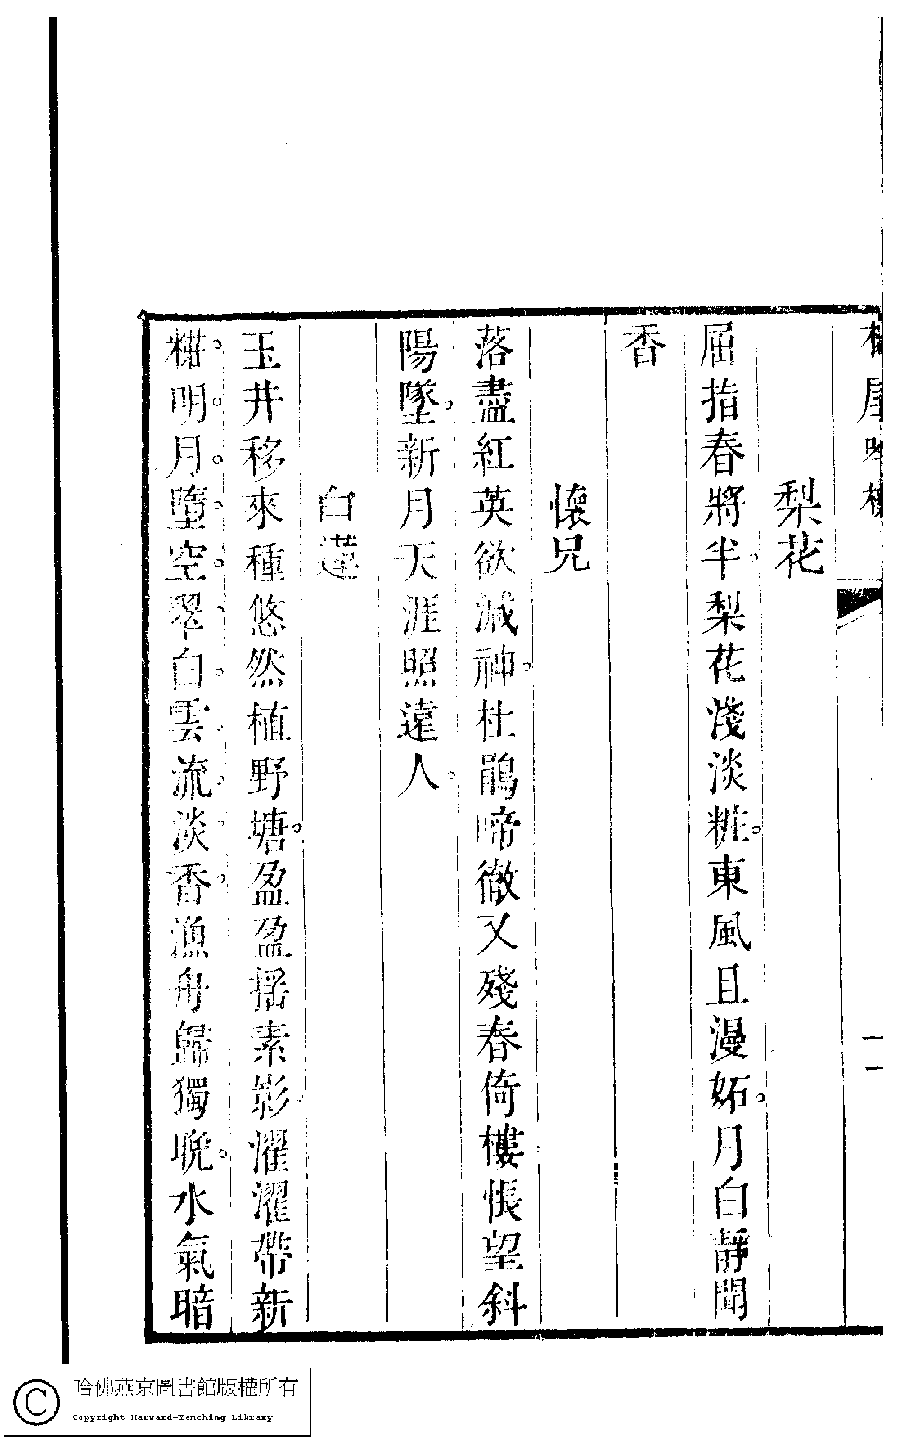 梨花
屈指春將半梨花淺淡粧東風且漫妬月白靜聞
香
懷兄
落盡紅英欲減神杜鵑啼徹又殘春倚樓悵望斜
陽墜新月天涯照遠人
白蓮
玉井移來種悠然植野塘盈盈搖素影濯濯帶新
糚明月墮空翠白雲流淡香漁舟歸獨晚水氣暗
哈佛燕京圖書館版權所有
Copyright Harvard-Yenching Library